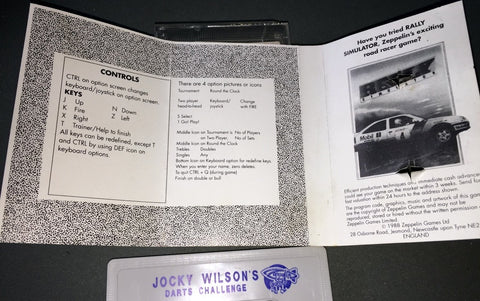 CONTROLS
CTRL on option screen changes
keyboard/joystick on option screen.
KEYS
J Up N Down
K Fire
X Right Z Left
T Trainer/Help to finish
All keys can be redefined, except T
and CTRL by using DEF icon on
keyboard options.
There are 4 option pictures or icons
Tournament Round the Clock
Two player Keyboard/ Change
head-to-head joystick with FIRE
S Select
1 Go! Play!
Middle Icon on Tournament is No of Players
or No. of Sets on Two Player.
Middle Icon on Round the Clock
Trebles Doubles
Singles Any
Bottom Icon on Keyboard option for redefine keys
When you enter your name, zero deletes.
To quit CTRL + Q (during game)
Finish on double or bull
Have you tried RALLY
SIMULATOR, Zeppelin's exciting
road racer game?
Mobil
Efficient production techniques and immediate cash advances
could see your game on the market within 3 weeks. Send for
fast valuation within 24 hours to the address shown.
The program code, graphics, music and artwork of this game
are the copyright of Zeppelin Games and may not be
reproduced, stored or hired without the written permission of
Zeppelin Games Limited.
© 1988 Zeppelin Games Ltd.
28 Osborne Road, Jesmond, Newcastle upon Tyne NE2
ENGLAND
JOCKY WILSON'S
DARTS CHALLENGE